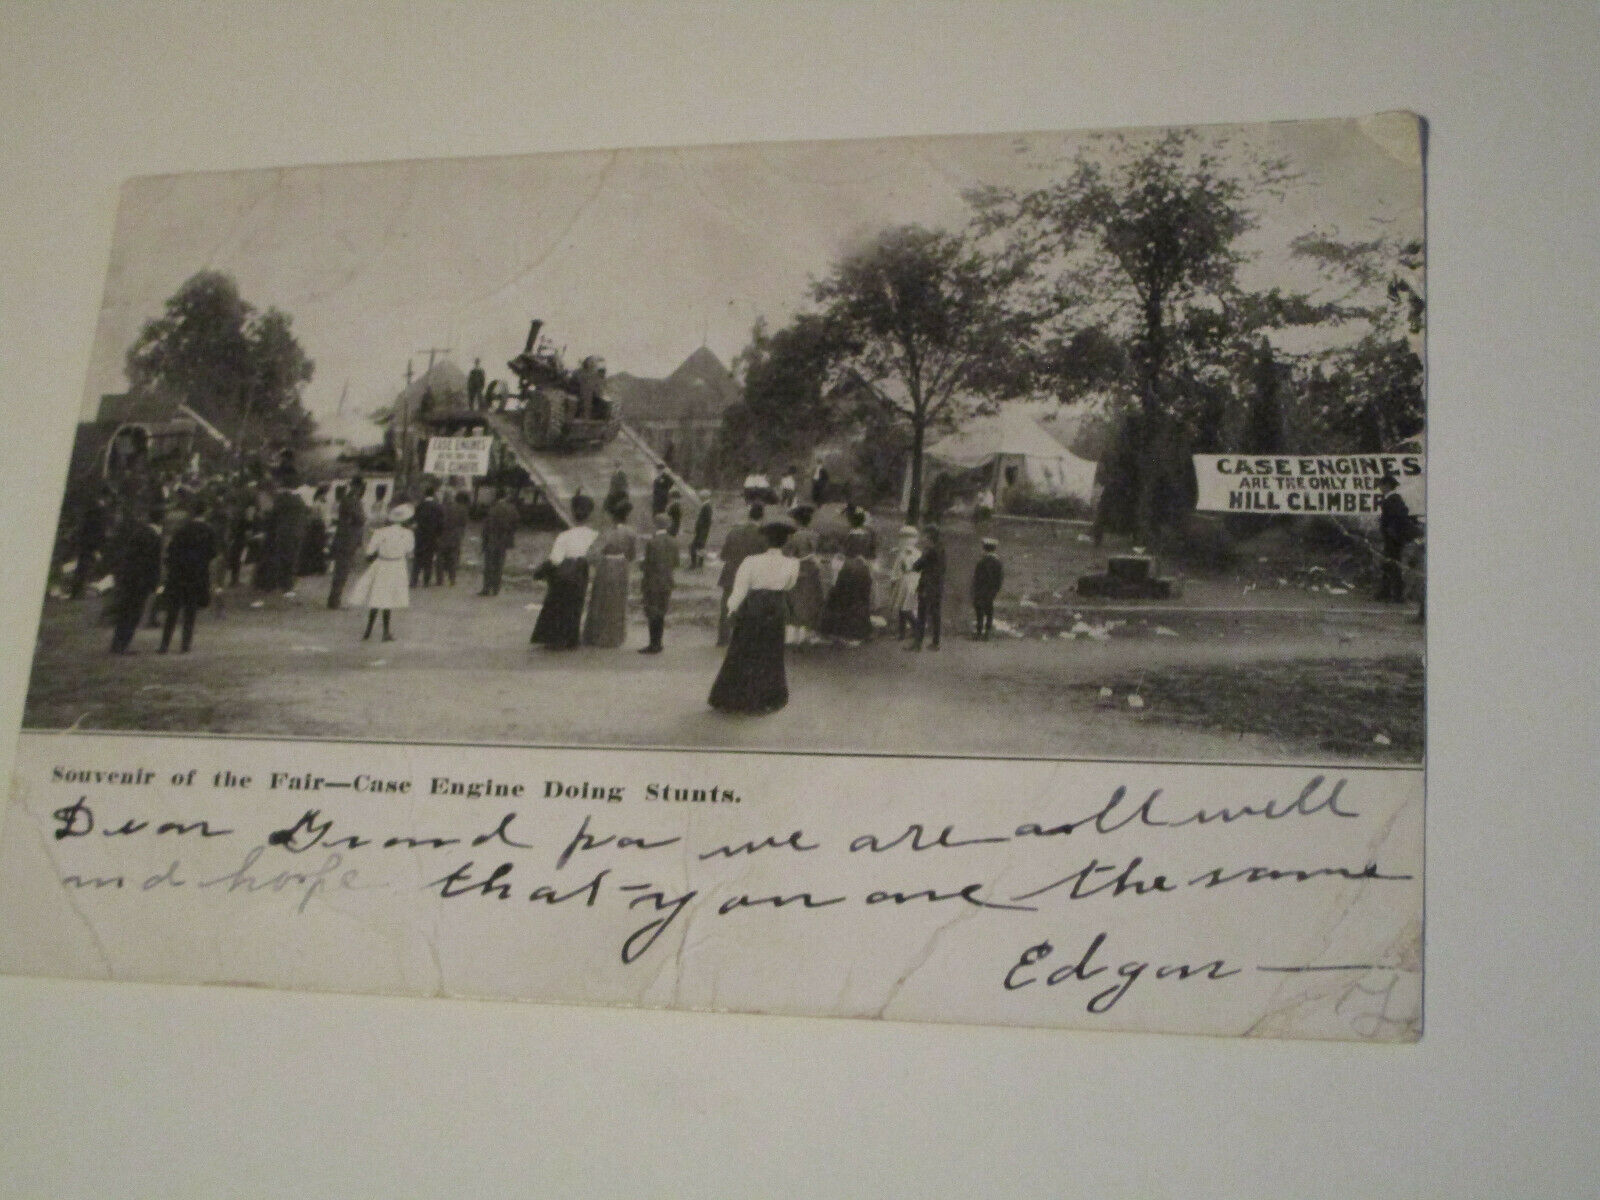 CASE ENGINES
ARE THE ONLY REAL
HILL CLIMBERS
CASE ENGINES
ARE THE ONLY REA
HILL CLIMBER
Souvenir of the Fair—Case Engine Doing Stunts.
Dear Grand pa we are all well
and hope that you are the same
Edgar